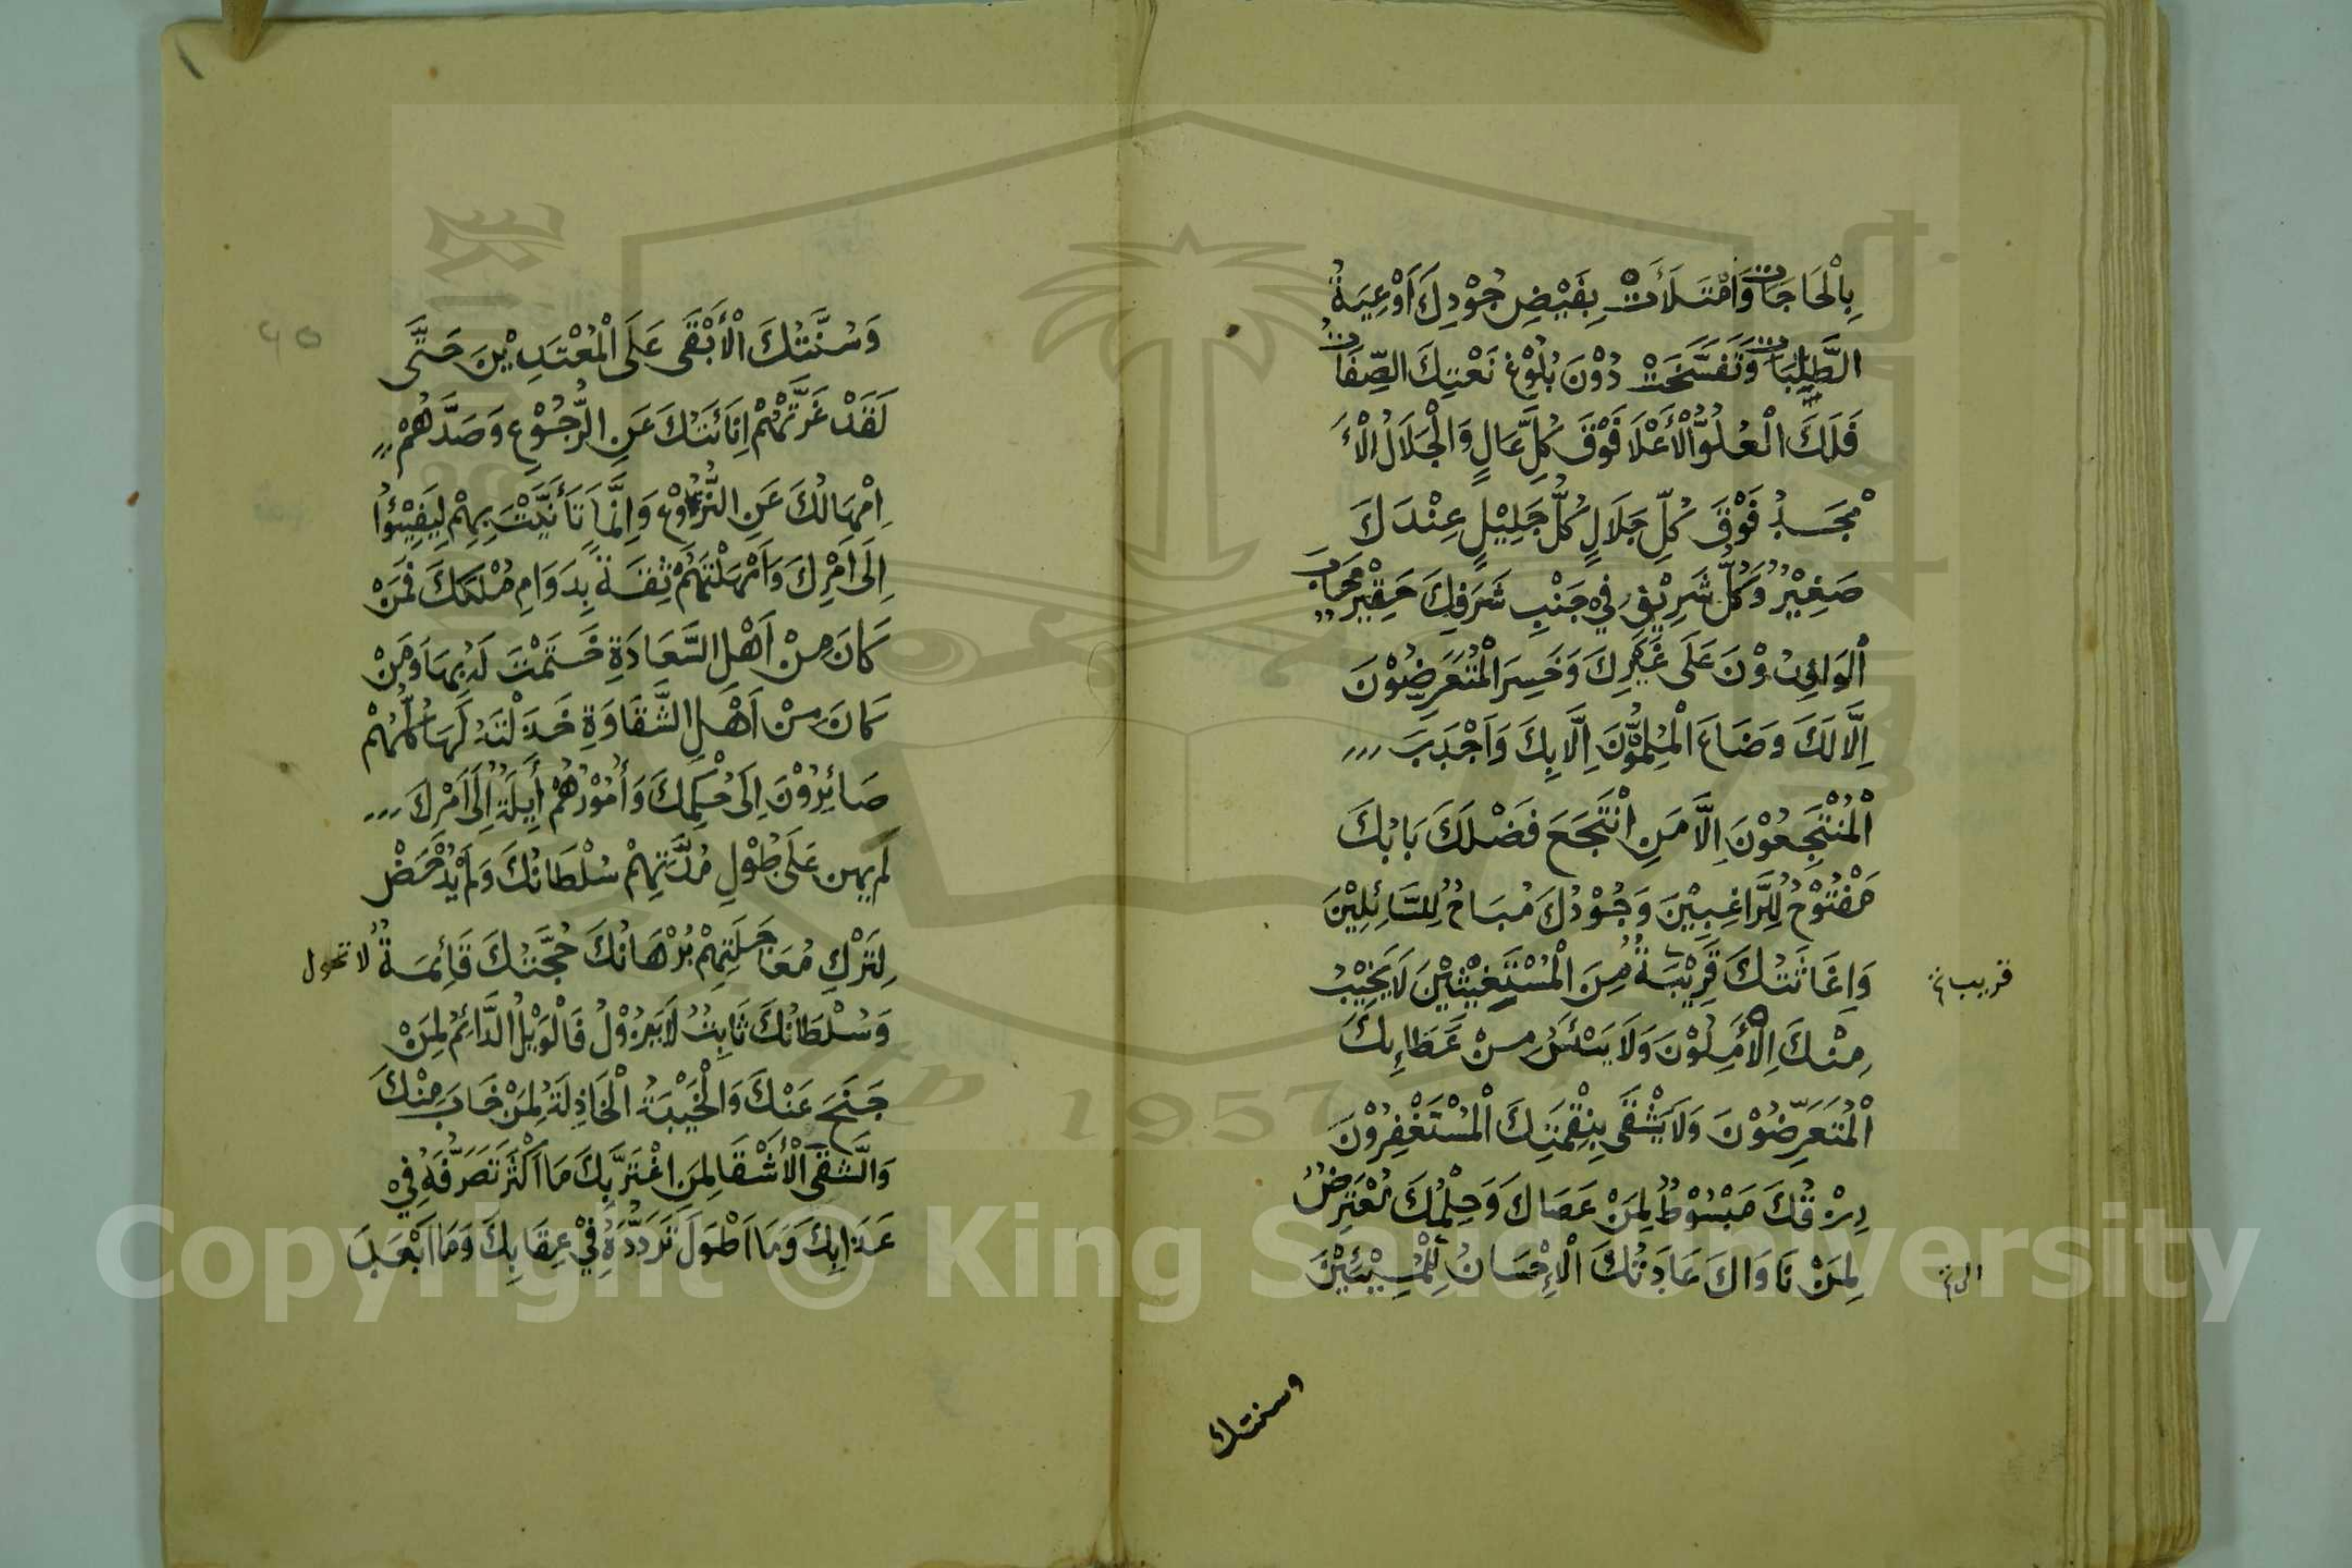 بِالْحَاجَاتِ وَامْتَلَأَتْ بِفَيْضِ جُوْدِكَ اَوْعِيَةُ
الطَّلِبَاتِ وَتَفَسَّخَتْ دُوْنَ بُلُوْغِ نَعْتِكَ الصِّفَاتُ
فَلَكَ الْعُلُوُّ الْأَعْلَا فَوْقَ كُلِّ عَالٍ وَالْجَلَالُ الْأَ
مْجَدُ فَوْقَ كُلِّ جَلَالٍ كُلُّ جَلِيْلٍ عِنْدَكَ
صَغِيْرٌ وَكُلُّ شَرِيْفٍ فِيْ جَنْبِ شَرَفِكَ حَقِيْرٌ خَابَ
الْوَافِدُوْنَ عَلَى غَيْرِكَ وَخَسِرَ الْمُتَعَرِّضُوْنَ
اِلَّا لَكَ وَضَاعَ الْمُلِمُّوْنَ اِلَّا بِكَ وَاَجْدَبَ
الْمُنْتَجِعُوْنَ اِلَّا مَنِ انْتَجَعَ فَضْلَكَ بَابُكَ
مَفْتُوْحٌ لِلرَّاغِبِيْنَ وَجُوْدُكَ مُبَاحٌ لِلسَّائِلِيْنَ
وَاِغَاثَتُكَ قَرِيْبَةٌ مِنَ الْمُسْتَغِيْثِيْنَ لَا يَخِيْبُ
قريب
مِنْكَ الْأٰمِلُوْنَ وَلَا يَيْئَسُ مِنْ عَطَاءِكَ
الْمُتَعَرِّضُوْنَ وَلَا يَشْقَى بِنِقْمَتِكَ الْمُسْتَغْفِرُوْنَ
رِزْقُكَ مَبْسُوْطٌ لِمَنْ عَصَاكَ وَحِلْمُكَ مُعْتَرِضٌ
لِمَنْ نَاوَاكَ عَادَتُكَ الْإِحْسَانُ لِلْمُسِيْئِيْنَ
وسنتك
وَسُنَّتُكَ الْأَبْقَى عَلَى الْمُعْتَدِيْنَ حَتَّى
لَقَدْ غَرَّتْهُمْ اِنَائَتُكَ عَنِ الرُّجُوْعِ وَصَدَّهُمْ
اِمْهَالُكَ عَنِ النُّزُوْعِ وَاِنَّمَا تَأَنَّيْتَ بِهِمْ لِيَفِيْئُوْا
اِلَى اَمْرِكَ وَاَمْهَلْتَهُمْ ثِقَةً بِدَوَامِ مُلْكِكَ فَمَنْ
كَانَ مِنْ اَهْلِ السَّعَادَةِ خَتَمْتَ لَهُ بِهَا وَمَنْ
كَانَ مِنْ اَهْلِ الشَّقَاوَةِ خَذَلْتَهُ لَهَا كُلُّهُمْ
صَائِرُوْنَ اِلَى حُكْمِكَ وَأُمُوْرُهُمْ أٰيِلَةٌ اِلَى اَمْرِكَ
لَمْ يَهِنْ عَلَى طُوْلِ مُدَّتِهِمْ سُلْطَانُكَ وَلَمْ يَدْحَضْ
لِتَرْكِ مُعَاجَلَتِهِمْ بُرْهَانُكَ حُجَّتُكَ قَائِمَةٌ لا تحول
وَسُلْطَانُكَ ثَابِتٌ لَا يَزُوْلُ فَالْوَيْلُ الدَّائِمُ لِمَنْ
جَنَحَ عَنْكَ وَالْخَيْبَةُ الْخَاذِلَةُ لِمَنْ خَابَ مِنْكَ
وَالشَّقَى الْأَشْقَا لِمَنِ اغْتَرَّ بِكَ مَا اَكْثَرَ تَصَرُّفَهُ فِيْ
عَذَابِكَ وَمَا اَطْوَلَ تَرَدُّدَهُ فِيْ عِقَابِكَ وَمَا اَبْعَدَ
1957
Copyright © King Saud University